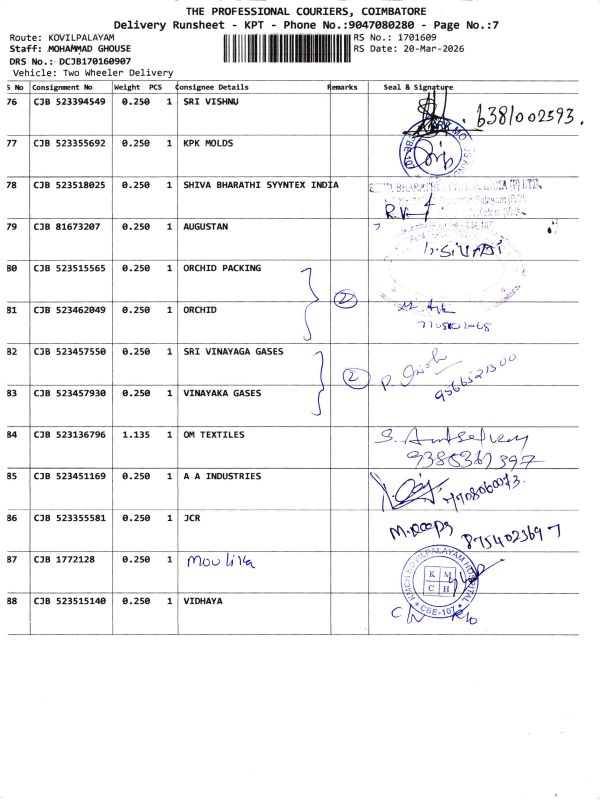 THE PROFESSIONAL COURIERS, COIMBATORE
Delivery Runsheet - KPT - Phone No.:9047080280 - Page No.:7
Route: KOVILPALAYAM RS No.: 1701609
Staff: MOHAMMAD GHOUSE RS Date: 20-Mar-2026
DRS No.: DCJB170160907
Vehicle: Two Wheeler Delivery
S No Consignment No Weight PCS Consignee Details Remarks Seal & Signature
76 CJB 523394549 0.250 1 SRI VISHNU 6381002593.
77 CJB 523355692 0.250 1 KPK MOLDS
78 CJB 523518025 0.250 1 SHIVA BHARATHI SYYNTEX INDIA
79 CJB 81673207 0.250 1 AUGUSTAN
80 CJB 523515565 0.250 1 ORCHID PACKING
2
81 CJB 523462049 0.250 1 ORCHID
82 CJB 523457550 0.250 1 SRI VINAYAGA GASES
2 9566521300
83 CJB 523457930 0.250 1 VINAYAKA GASES
84 CJB 523136796 1.135 1 OM TEXTILES
9380367397
85 CJB 523451169 0.250 1 A A INDUSTRIES
86 CJB 523355581 0.250 1 JCR M. Roopa 8754023697
87 CJB 1772128 0.250 1 Moulika
KMCH KOVILPALAYAM HOSPITAL
K M
C H
CBE-107
88 CJB 523515140 0.250 1 VIDHAYA